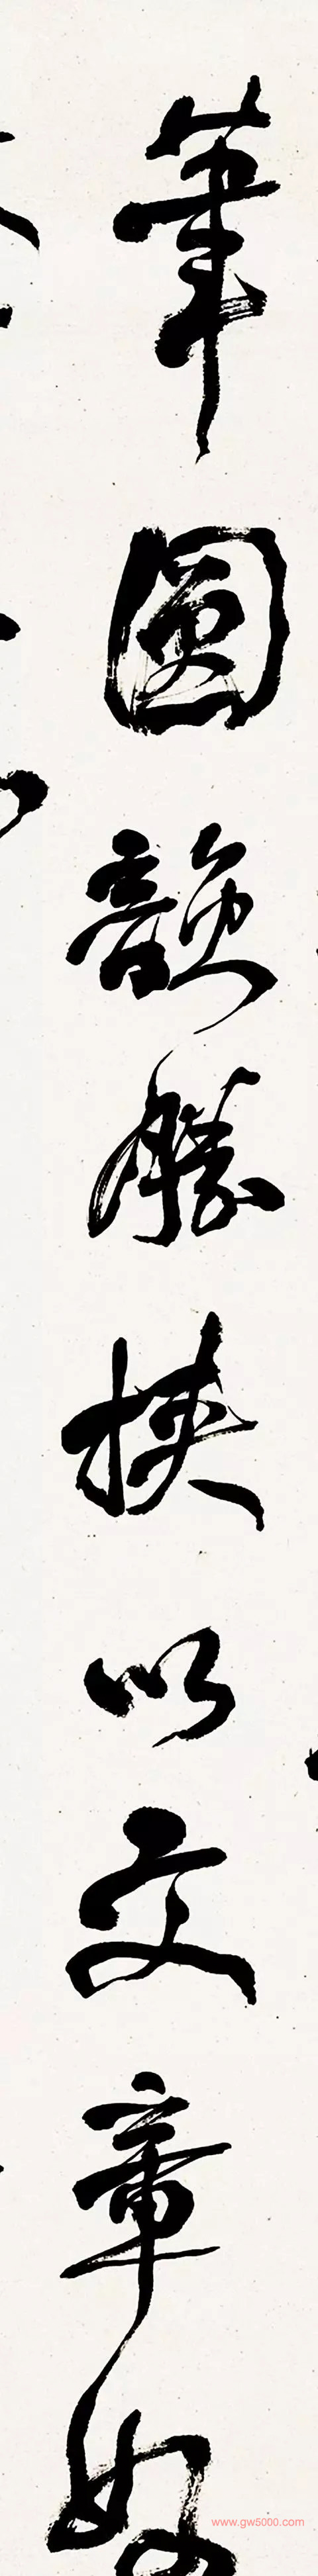 筆圓韻勝挾以文章妙
www.gw5000.com